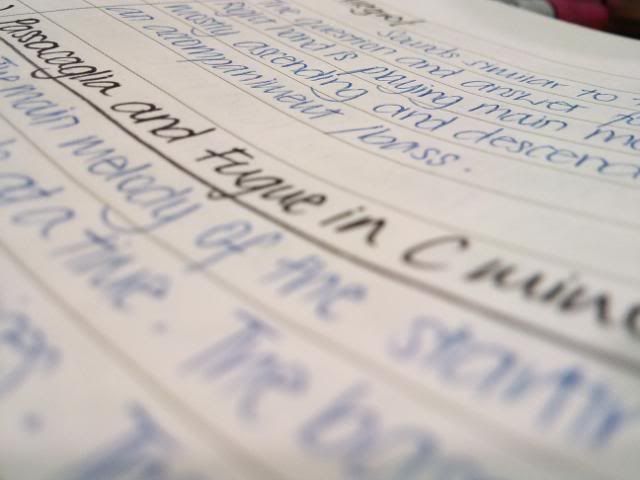 Sounds similar to
The question and answer
right hand is playing main
mostly ascending and descend
(an accompaniment / bass.
Passacaglia and Fugue in C mino
The main melody of the startin
at a time. The ba